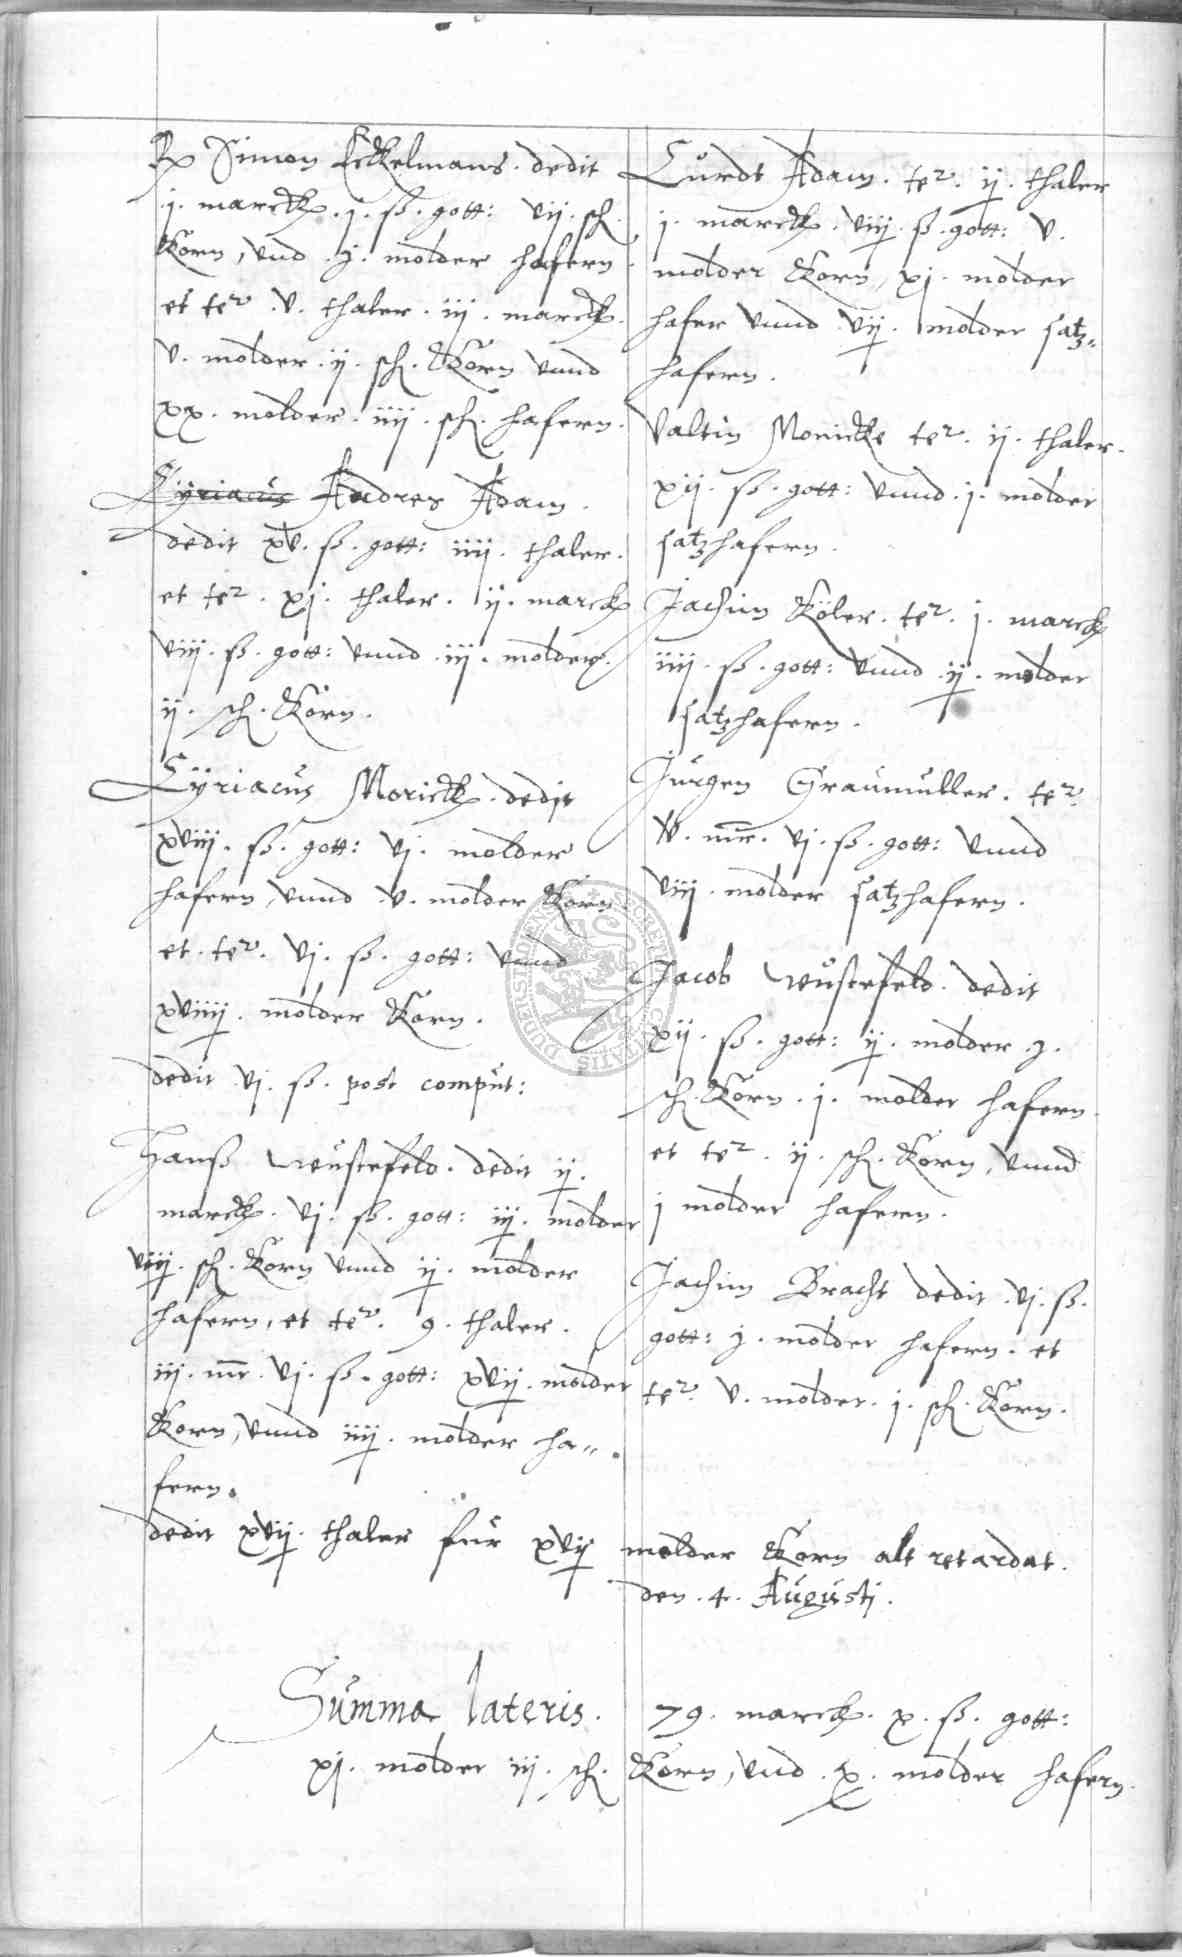 Rp Simon Eckelmans. dedit
j. marck. j. ß. gott: vij. sch.
Korn, vnd .j. molder hafern
et ter. v. thaler. iij. marck.
v. molder. ij. sch. Korn vnnd
xx. molder. iiij. sch. hafern.
Cyriacus Andres Adam.
dedit xv. ß. gott: iiij. thaler.
et ter. xj. thaler. ij. marck
viij. ß. gott: vnnd .iij. molder.
ij. sch. Korn.
Cyriacus Morick. dedit
xviij. ß. gott: vj. molder
hafern, vnnd .v. molder Korn
et. ter. vj. ß. gott: vnnd
xviiij. molder Korn.
dedit vj. ß. post comput:
Hanß Wustefeld. dedit ij.
marck. vj. ß. gott: iij. molder
viij. sch. Korn vnnd ij. molder
hafern, et ter. 9. thaler.
iij. mr. vj. ß. gott: xvij. molder
Korn, vnnd iiij. molder ha=
fern.
Curdt Adam. ter. ij. thaler
j. marck. viij. ß. gott: v.
molder Korn, xj. molder
hafer vnnd vij. molder satz=
hafern.
Valtin Monicke ter. ij. thaler.
xij. ß. gott: vnnd .j. molder
satzhafern.
Jachim Köler. ter. j. marck
iiij. ß. gott: vnnd ij. molder
satzhafern.
Jurgen Graumuller. ter.
v. mr. vj. ß. gott: vnnd
viij. molder satzhafern.
Jacob Wustefeld. dedit
xij. ß. gott: ij. molder .j.
sch. Korn. j. molder hafern.
et ter. ij. sch. Korn, vnnd
j molder hafern.
Jachim Bracht dedit .vj. ß.
gott: j. molder hafern. et
ter. v. molder. j. sch. Korn.
dedit xvij. thaler fur xvij molder Korn alt retardat.
den .4. Augusti.
Summa lateris. 79. marck. x. ß. gott:
xj. molder iij. sch. Korn, vnd .x. molder hafern.